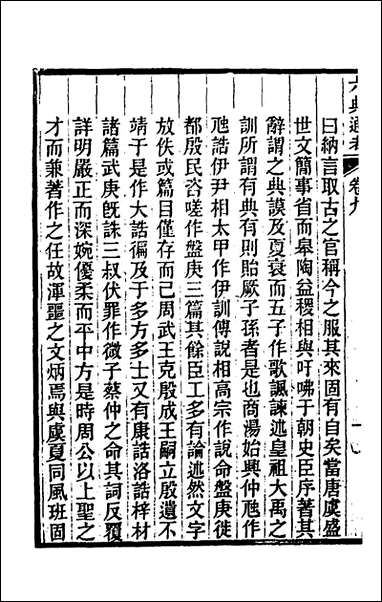 六典通考
卷九
曰納言取古之官稱今之服其來固有自矣當唐虞盛
世文簡事省而皋陶益稷相與吁咈于朝史臣序著其
辭謂之典謨及夏衰而五子作歌諷諫述皇祖大禹之
訓所謂有典有則貽厥子孫者是也商湯始興仲虺作
虺誥伊尹相太甲作伊訓傅說相高宗作說命盤庚徙
都殷民咨嗟作盤庚三篇其餘臣工多有論述然文字
放佚或篇目僅存而已周武王克殷成王嗣立殷遺不
靖于是作大誥徧及于多方多士又有康誥洛誥梓材
諸篇武庚旣誅三叔伏罪作微子蔡仲之命其詞反覆
詳明嚴正而深婉優柔而平中方是時周公以上聖之
才而兼著作之任故渾噩之文炳焉與虞夏同風班固